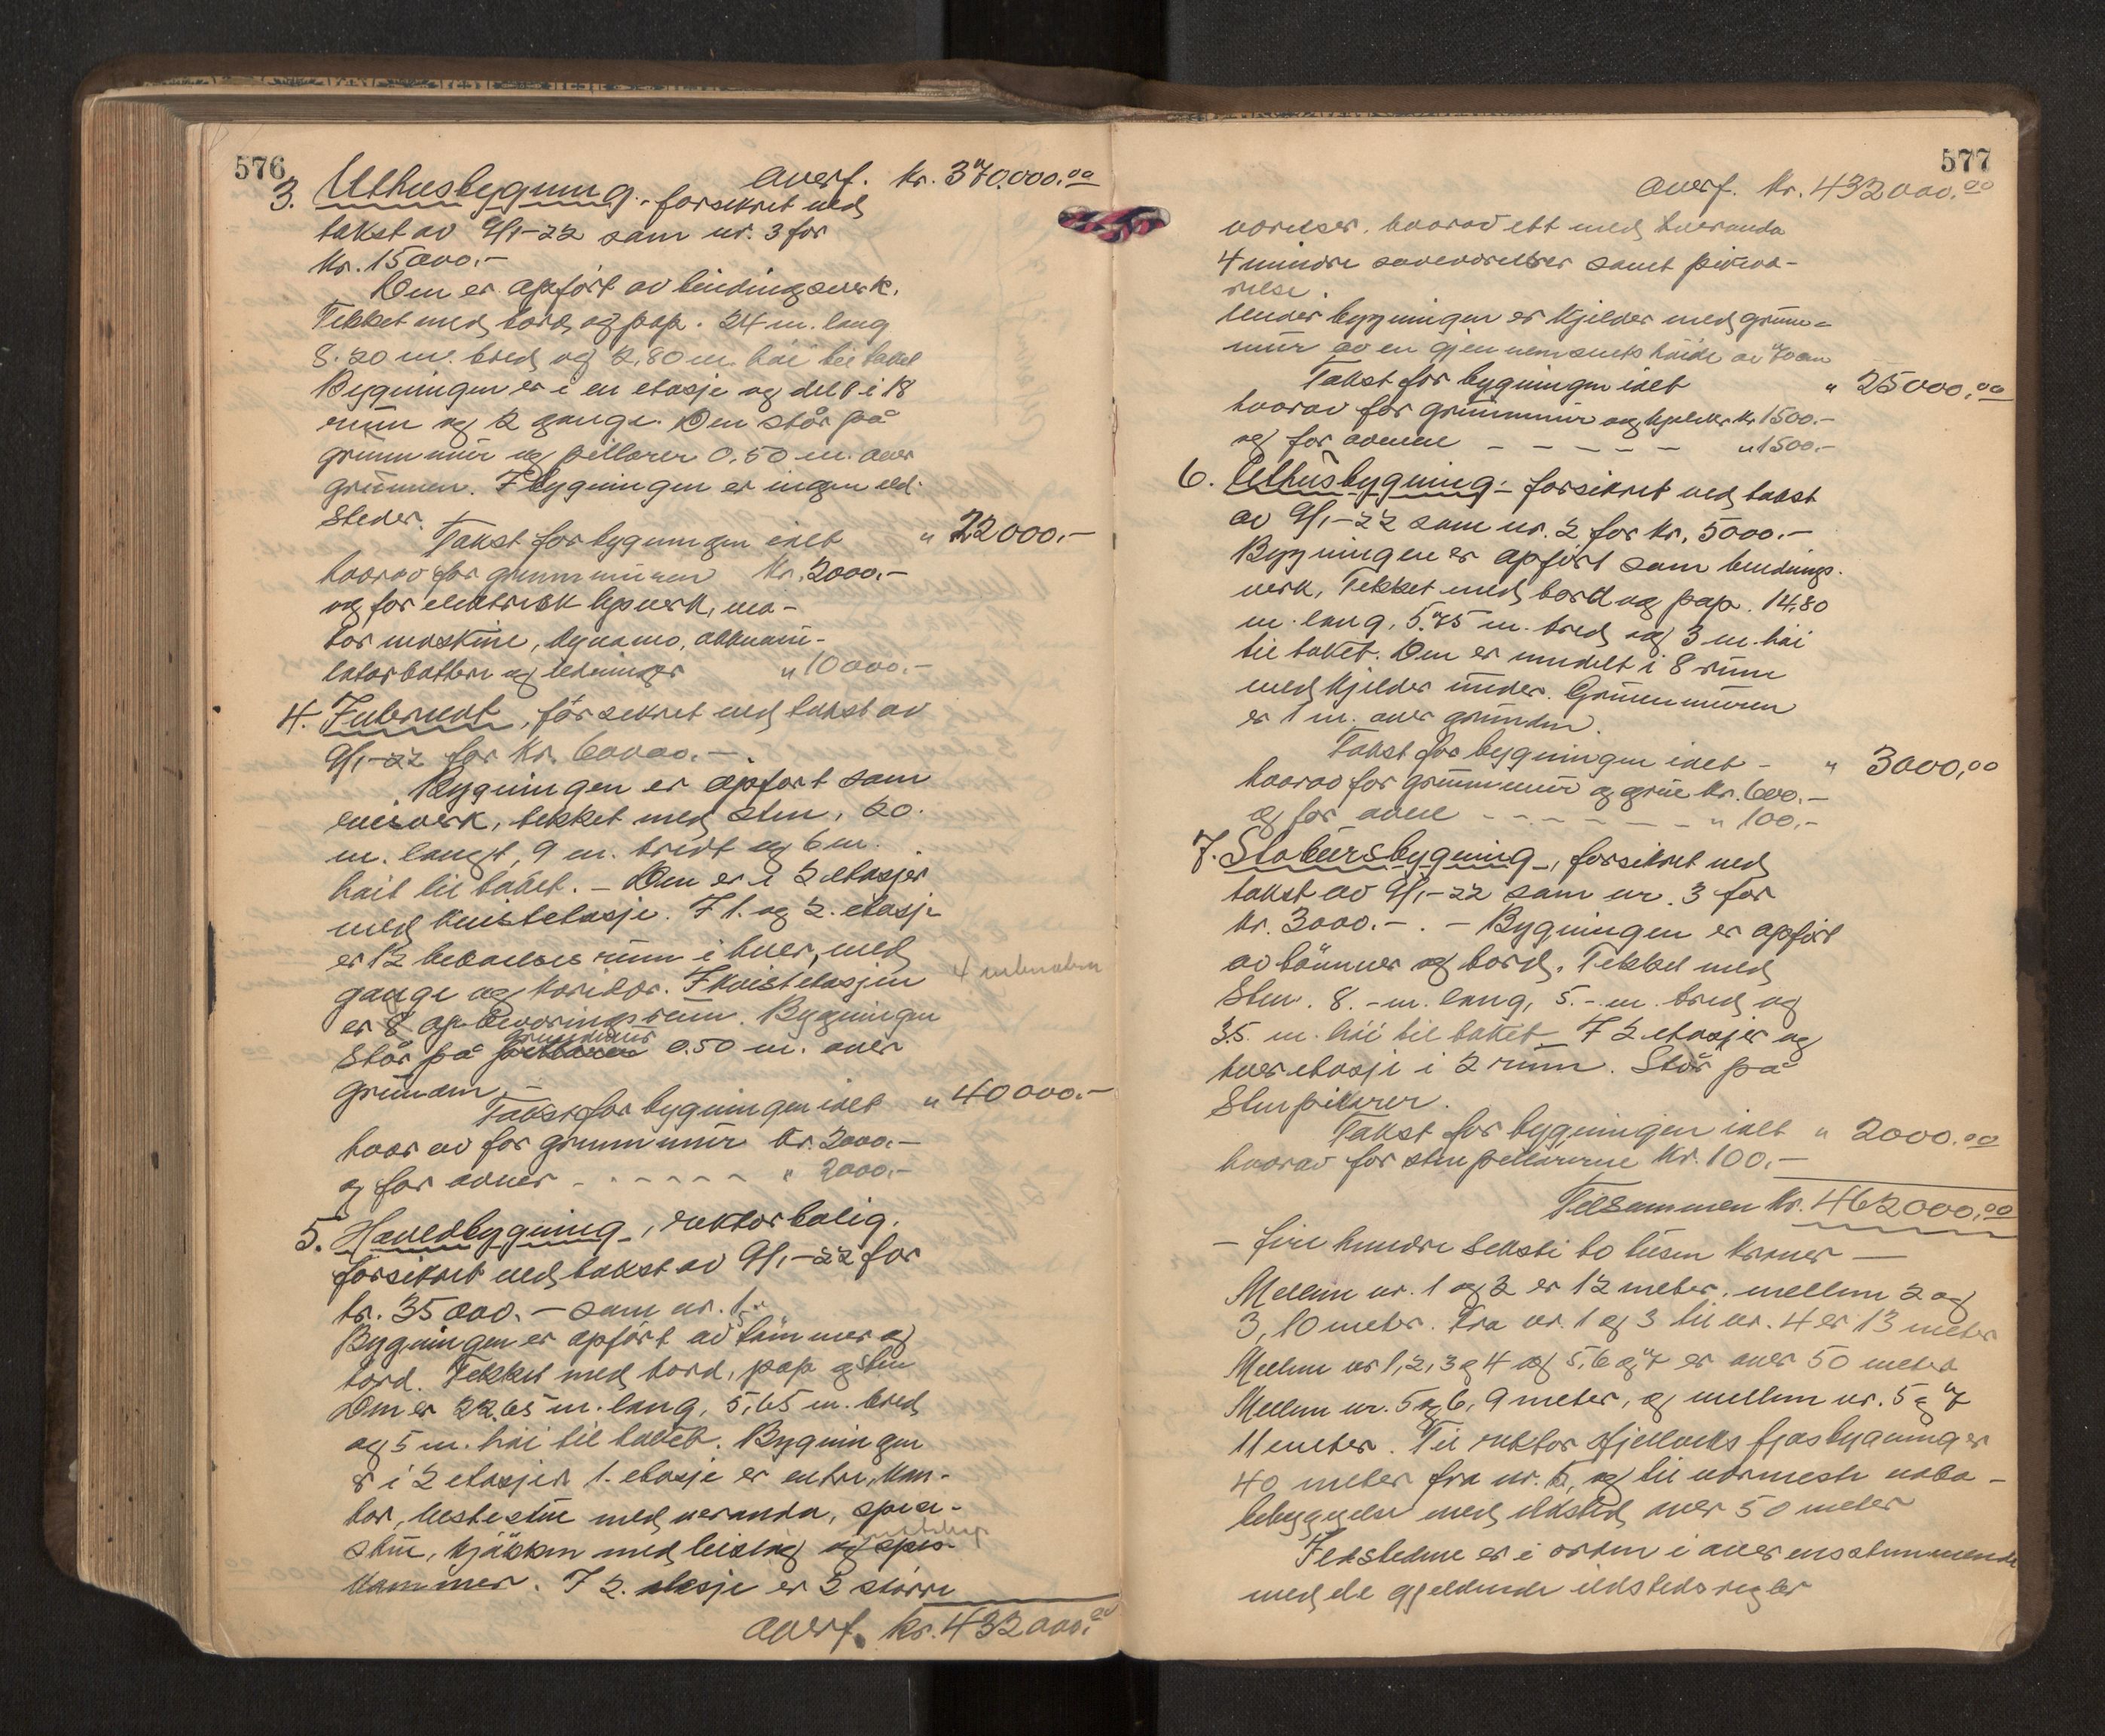 576
overf. kr. 370.000.00
3. Uthusbygning. forsikret ved
takst av 9/1-22 som nr. 3 for
kr. 15000.-
Den er opført av bindingsverk.
Tekket med bord og pap. 24 m. lang
8.20 m. bred og 2,80 m. høi til taket
Bygningen er i en etasje og delt i 18
rum og 2 gange. Den står på
grunnmur og pillarer 0,50 m. over
grunnen. I bygningen er ingen ild-
steder.
Takst for bygningen ialt " 22000.-
hvorav for grunnmuren kr. 2000.-
og for elektrisk lysverk, mo-
tor maskine, dynamo, akkumu-
latorbatteri og ledninger " 10000.-
4. Internat, forsikret ved takst av
9/1-22 for kr. 60000.-
Bygningen er opført som
reisverk, tekket med sten, 20.
m. langt, 9 m. bredt og 6 m.
høit til taket. - Den er i 2 etasjer
med kvistetasje. I 1. og 2. etasje
er 12 beboelses rum i hver, med
gange og koridor. I kvistetasjen
er 8 opbevaringsrum. Bygningen
grundmur
står på pillarer 0.50 m. over
grunden.
Takst for bygningen ialt " 40000.-
hvorav for grunnmur kr. 2000.-
og for ovner - - - - - - " 2000.-
5. Hovedbygning, rektorbolig.
forsikret ved takst av 9/1-22 for
kr. 35000.- som nr. 1.
Bygningen er opført av tømmer og
bord. Tekket med bord, pap og sten
Den er 22.65 m. lang, 5,65 m. bred
og 5 m. høi til taket. Bygningen
er i 2 etasjer. 1. etasje er entre, kon-
tor, bestestue med veranda, spise-
stue, kjøkken med og spis-
kammer. I 2. etasje er 3 større
overf. kr. 432000.00
577
overf. kr. 432000.00
værelser. hvorav ett med veranda
4 mindre soveværelser samt pikevæ-
relse.
Under bygningen er kjelder med grunn-
mur av en gjennemsnits høide av 70 cm
Takst for bygningen ialt " 25000.00
hvorav for grunnmur og kjelder kr 1500.-
og for ovnene - - - - - " 1500.-
6. Uthusbygning - forsikret ved takst
av 9/1-22 som nr. 2 for kr. 5000.-
Bygningen er opført som bindings-
verk, Tekket med bord og pap. 14,80
m. lang, 5.75 m. bred og 3 m. høi
til taket. Den er inndelt i 8 rum
med kjelder under. Grunnmuren
er 1 m. over grunden.
Takst for bygningen ialt - " 3000,00
hvorav for grunnmur og grue kr. 600.-
og for ovne - - - - - - - " 100.-
7. Stabursbygning, forsikret ved
takst av 9/1-22 som nr. 3 for
kr. 3000.-. - Bygningen er opført
av tømmer og bord. Tekket med
sten. 8.- m. lang, 5.- m. bred og
3.5. m. høi til taket. I 2 etasjer og
hver etasje i 2 rum. Står på
stenpilarer.
Takst for bygningen ialt " 2000.00
hvorav for stenpillarerne kr. 100.-
Tilsammen kr. 462000.00
- fire hundre seksti to tusen kroner -
Mellem nr. 1 og 2 er 12 meter. mellem 2 og
3, 10 meter. Fra nr. 1 og 3 til nr. 4 er 13 meter
Mellem nr 1,2,3 og 4 og 5,6 og 7 er over 50 meter
Mellem nr. 5 og 6, 9 meter, og mellem nr. 5 og 7
11 meter. Til rektor fjøsbygning er
40 meter fra nr. 5, og til nærmeste nabo-
bebyggelse med ildsted over 50 meter
Ildstedene er i orden i overensstemmende
med de gjeldende ildstedsregler